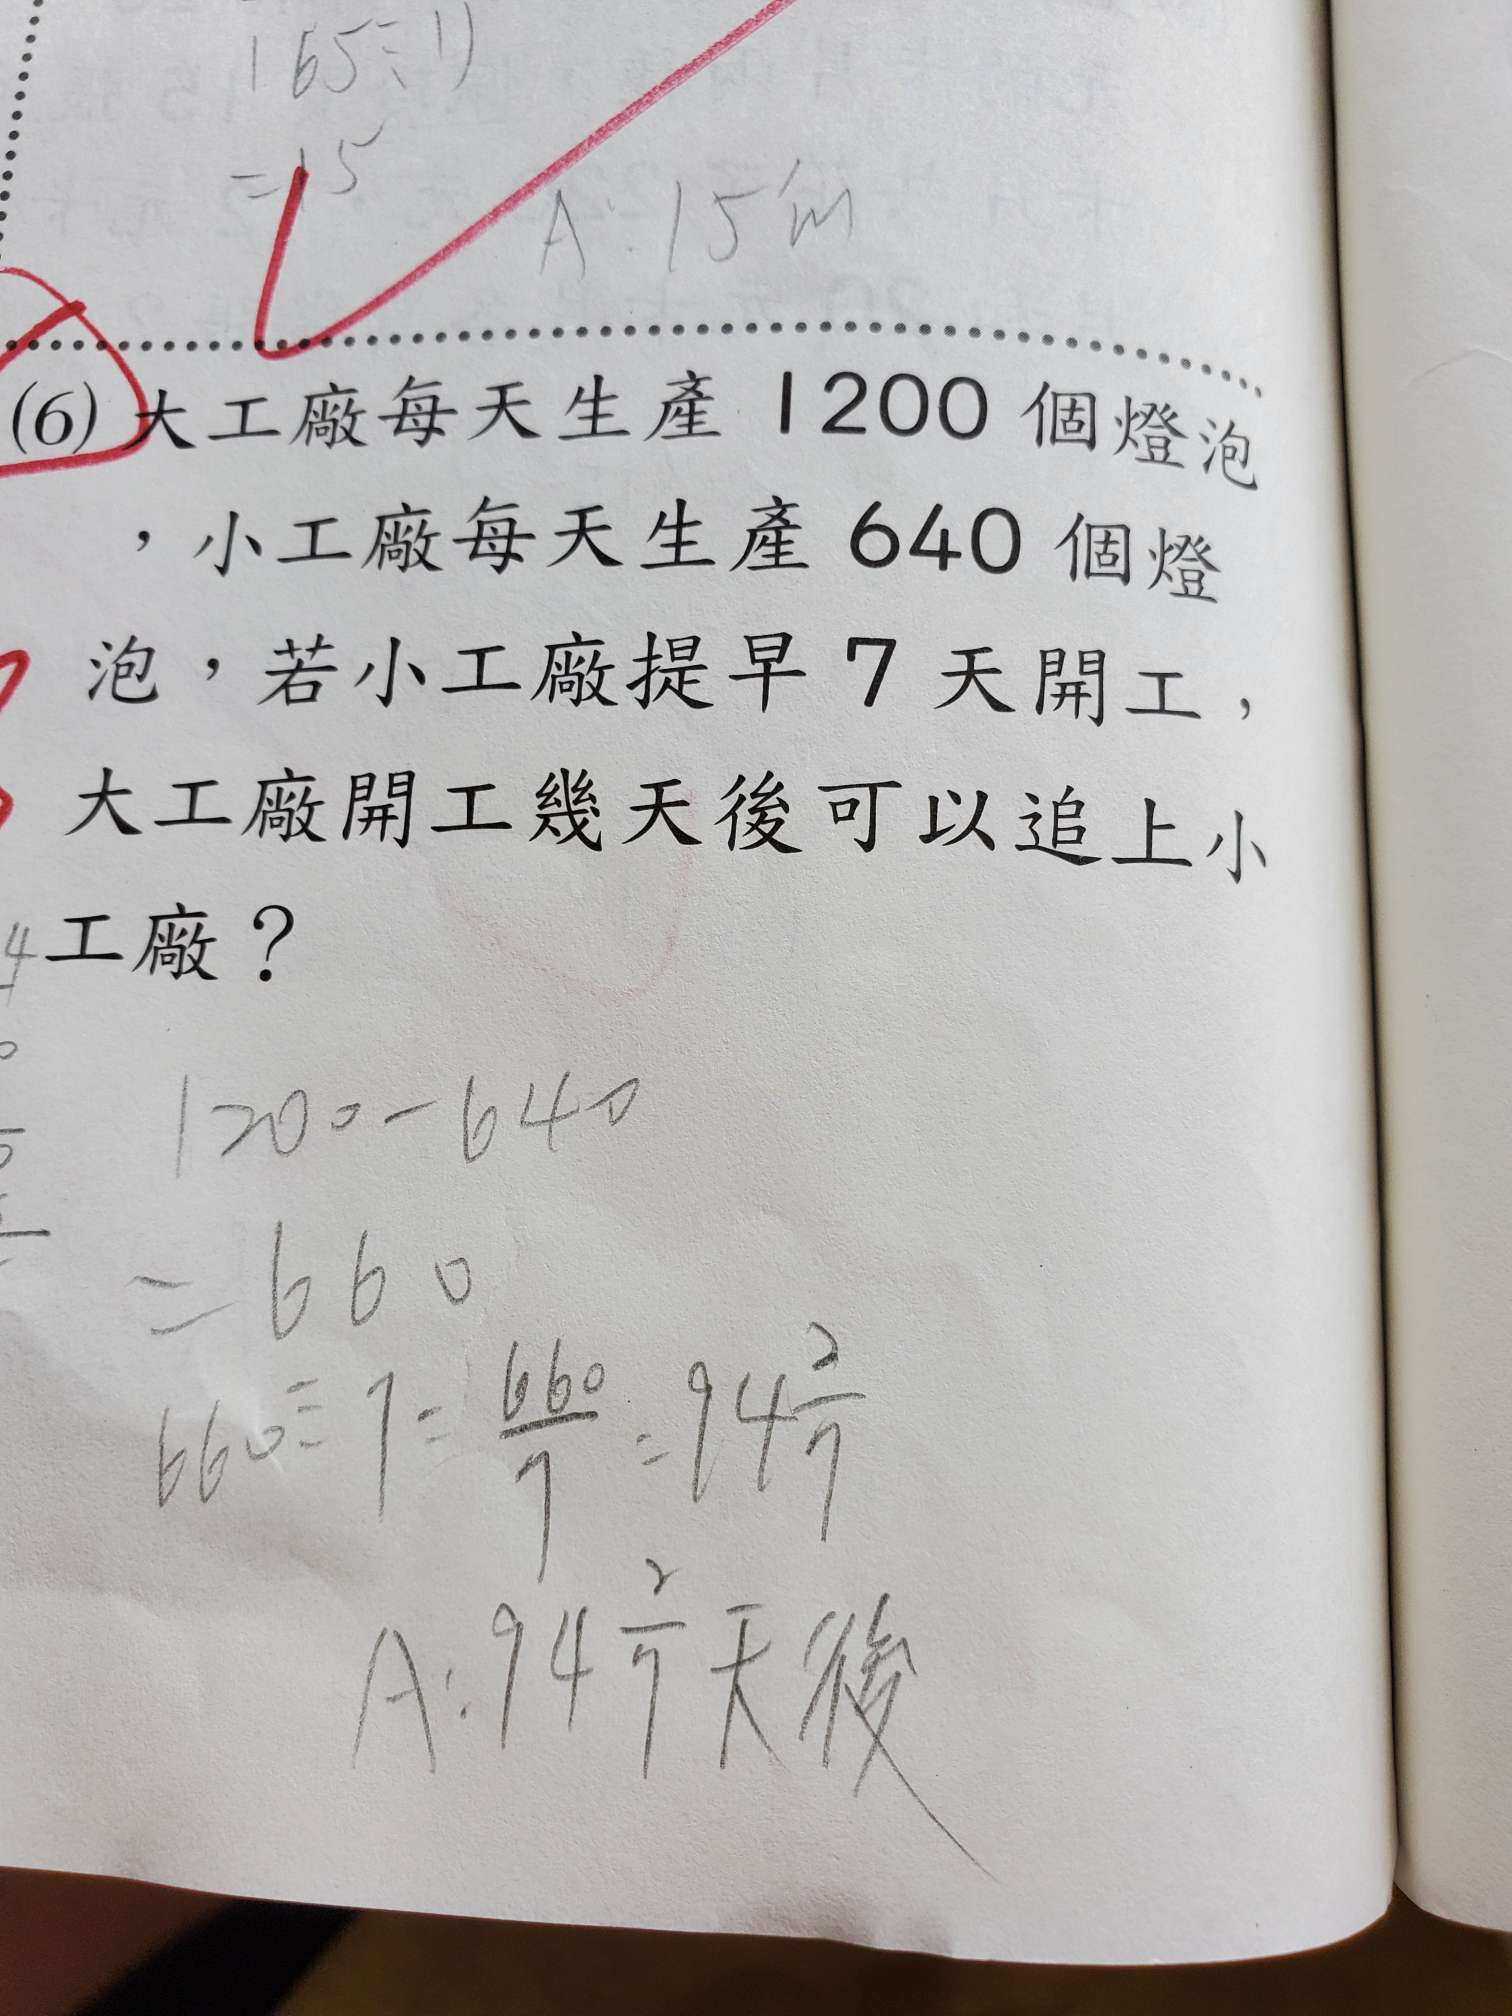 165÷11
=15
A:15個
(6)大工廠每天生產1200個燈泡
，小工廠每天生產640個燈
泡，若小工廠提早7天開工，
大工廠開工幾天後可以追上小
工廠？
1200-640
=660
660÷7=660/7=94 2/7
A:94 2/7天後